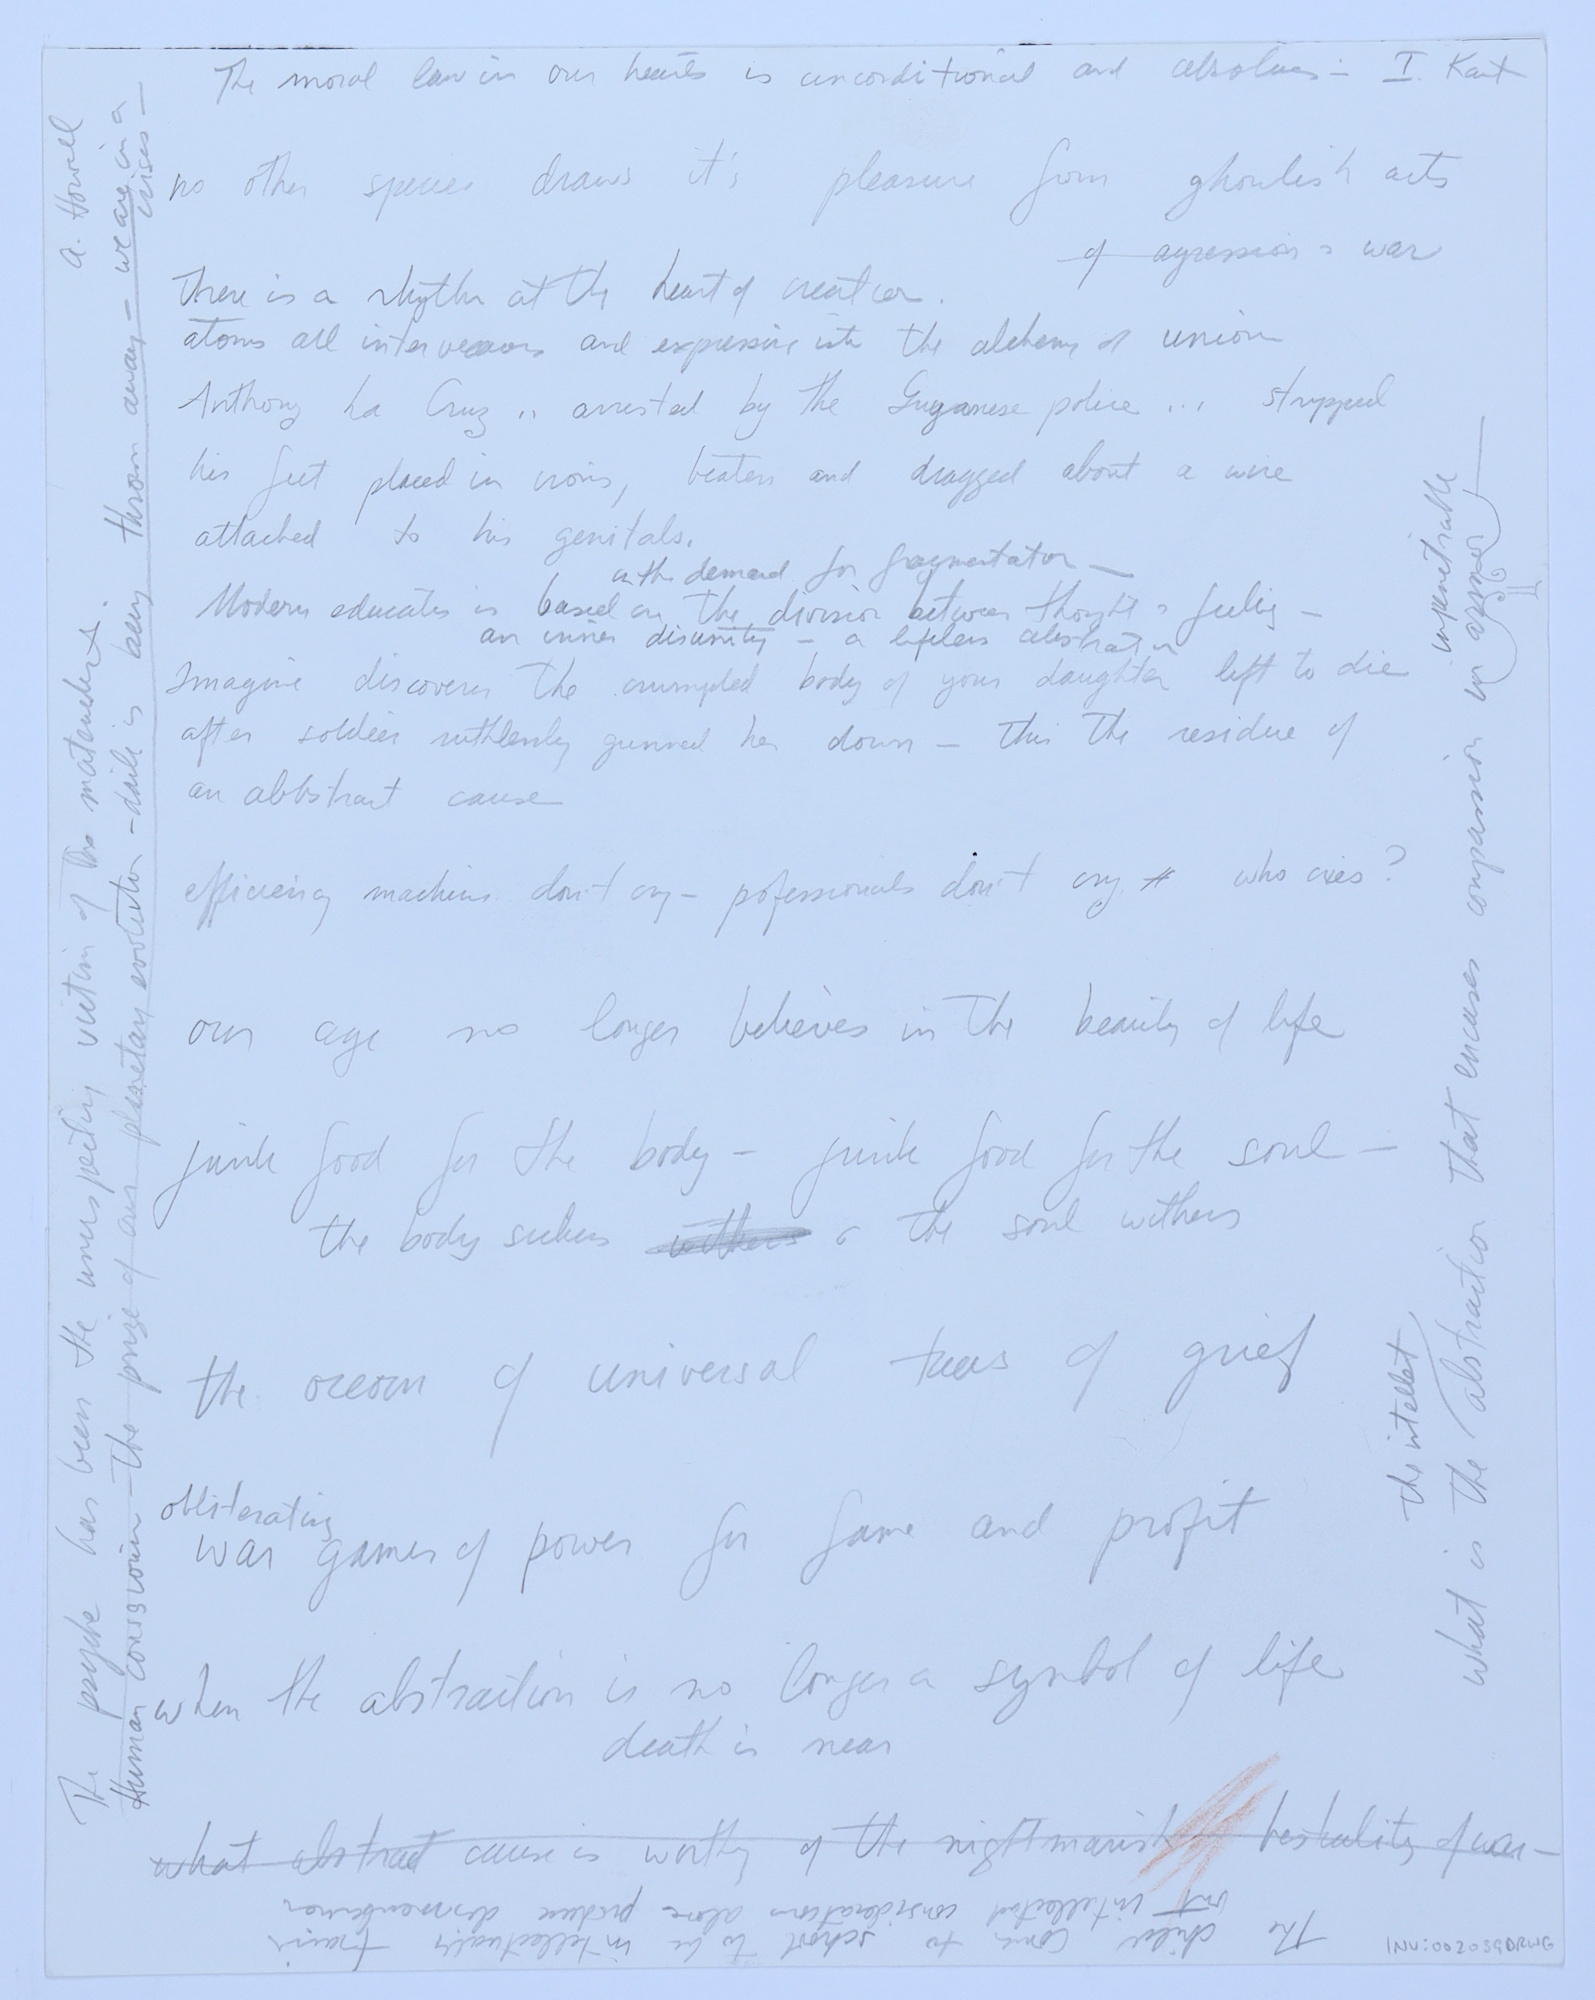 The moral law in our hearts is unconditional and absolute – I. Kant
no other species draws it's pleasure from ghoulish acts
of agression & war
There is a rhythm at the heart of creation.
atoms all interweaves and expressive into the alchemy of union
Anthony La Cruz .. arrested by the Guyanese police ... stripped
his feet placed in irons, beaten and dragged about a wire
attached to his genitals.
on the demand for fragmentation —
Modern education is based on the division between thought & feeling –
an inner disunity – a lifeless abstraction
Imagine discovering the crumpled body of your daughter left to die
after soldiers ruthlessly gunned her down – this the residue of
an abbstract cause
efficiency machines don't cry – pofessionals don't cry # who cries?
our age no longer believes in the beauty of life
junk food for the body – junk food for the soul –
the body sickens withers & the soul withers
the ocean of universal tears of grief
obliterating
war games of power for fame and profit
when the abstraction is no longer a symbol of life
death is near
what abstract cause is worthy of the nightmarish bestiality of war –
The child comes to school to be intellectually
but intellectual considerations alone produce
The psyche has been the unsuspecting victim of the materialist. A. Howell
Human consciousness – the prize of our planetary evolution – daily is being thrown away – we are in a
crises –
the intellet
what is the abstraction that encases compassion in armor
impenetrable
INV:002039DRWG